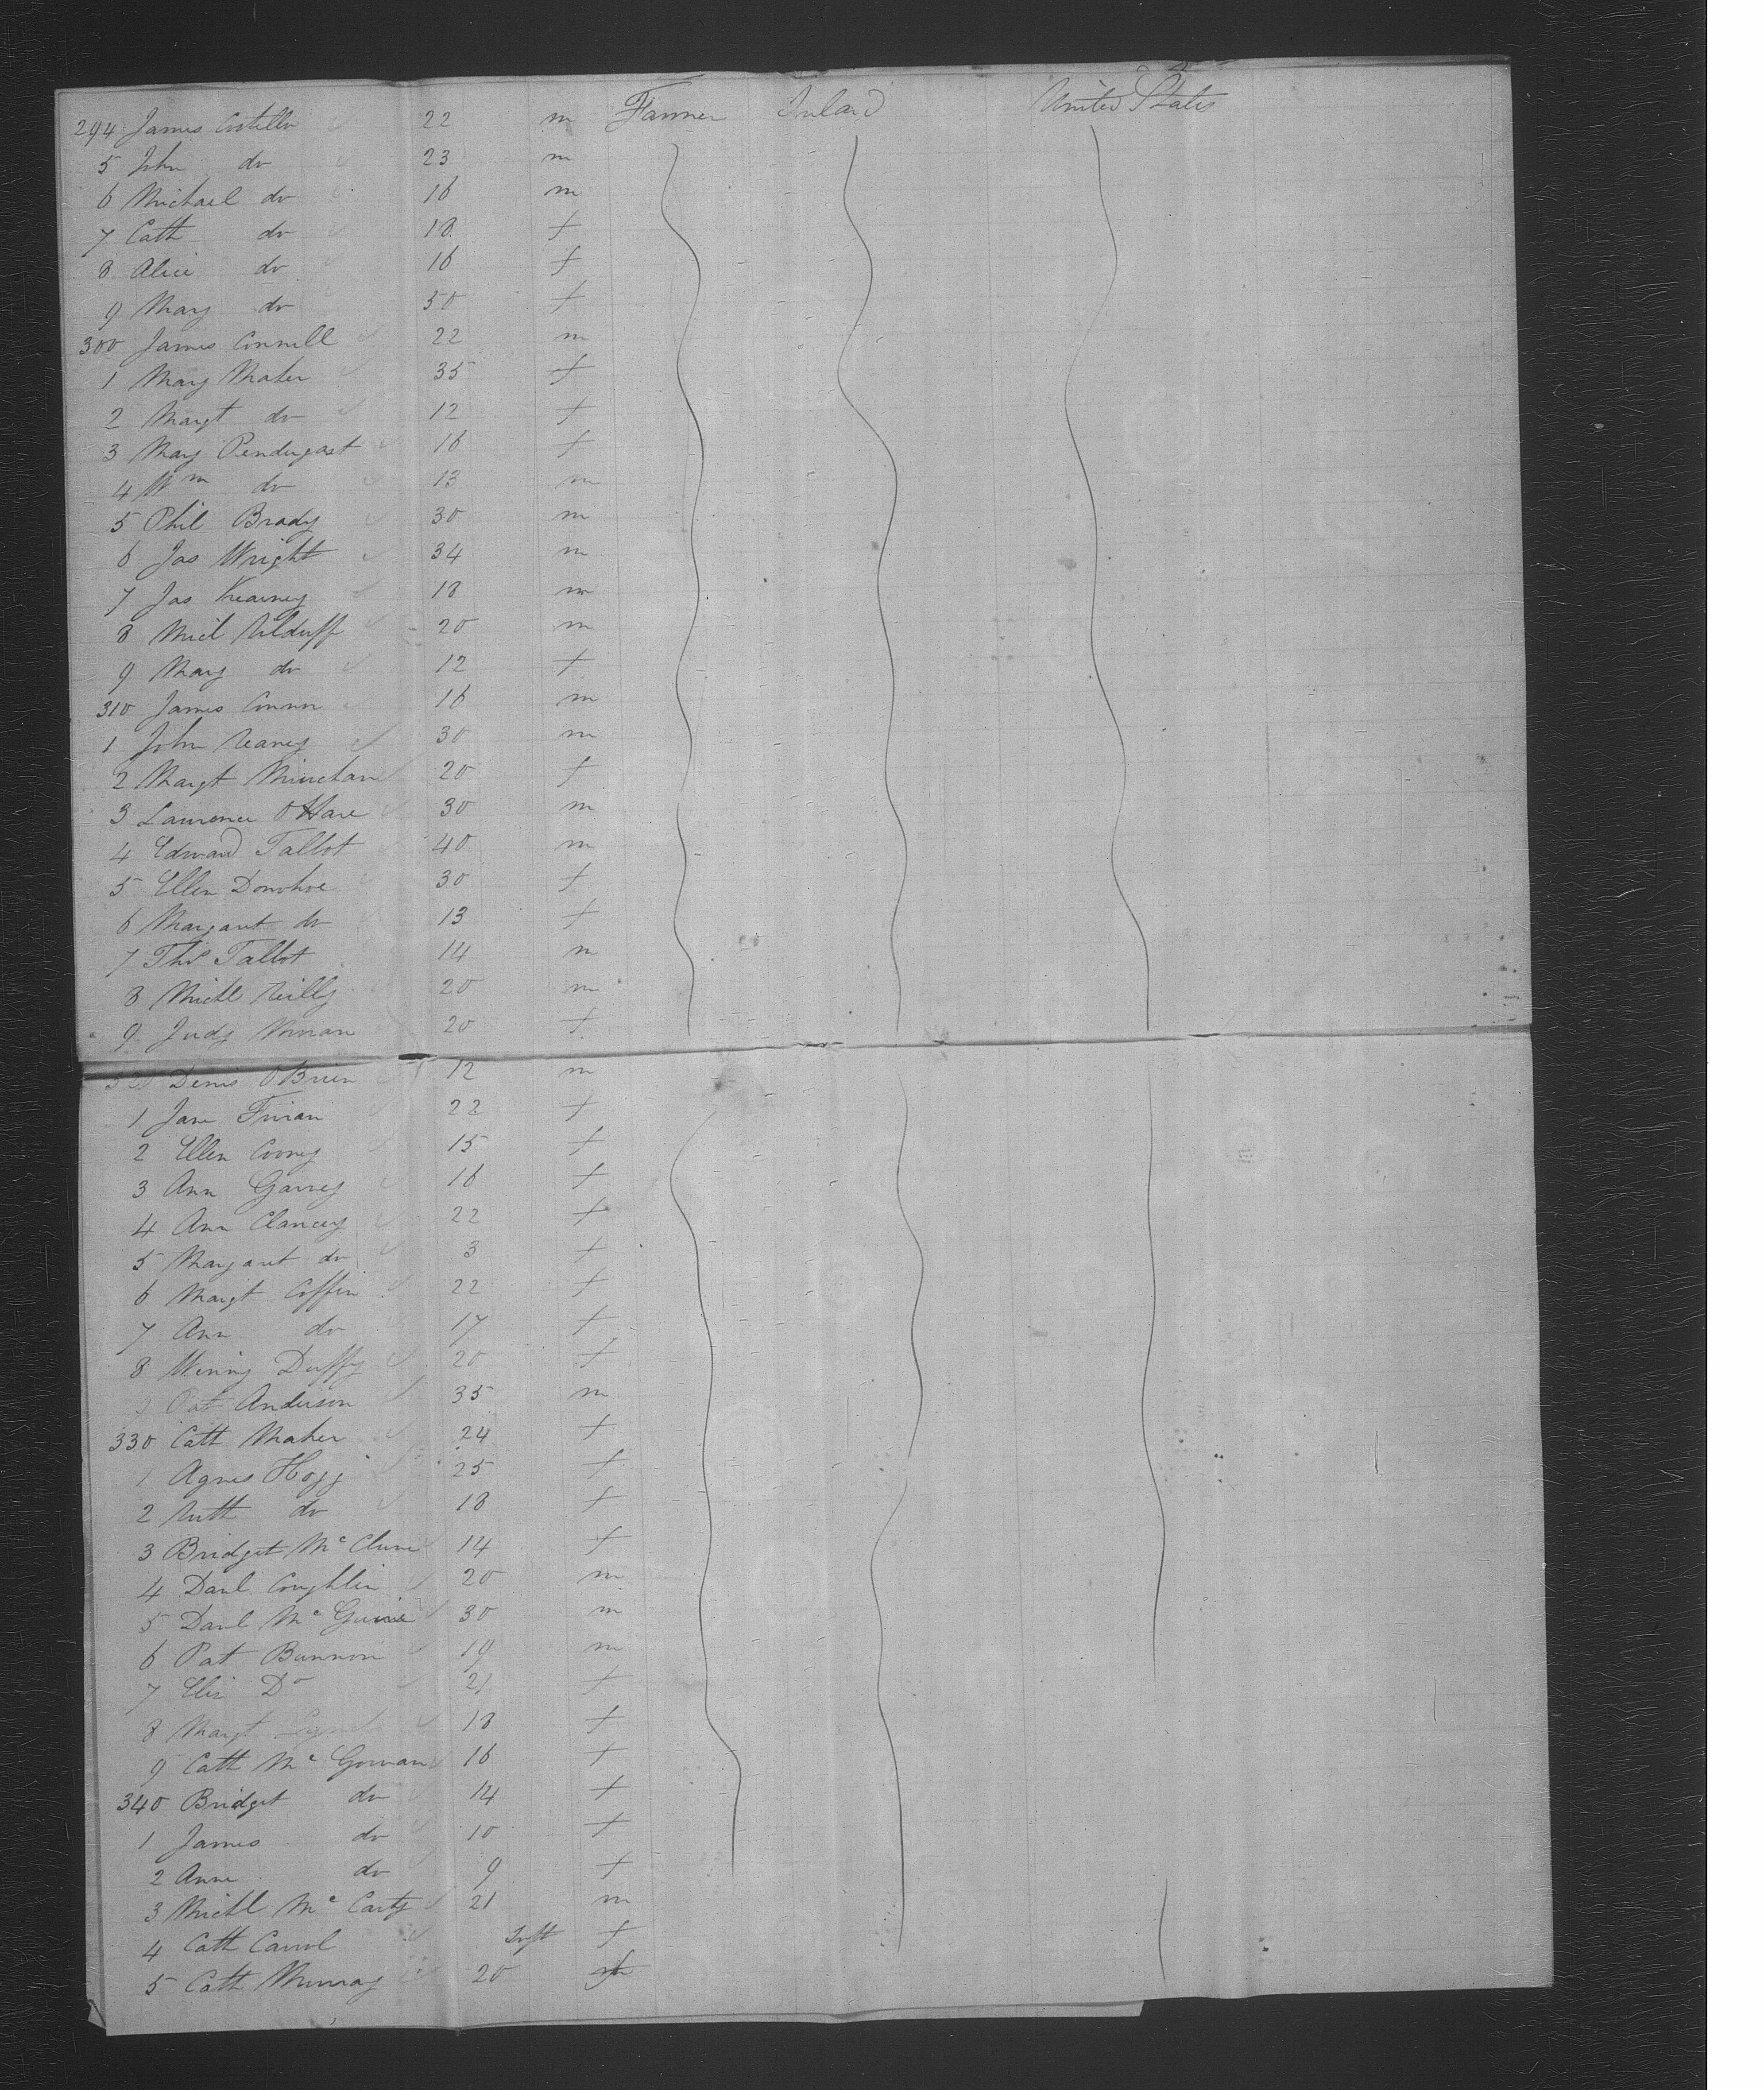 294 James Costello 22 m Farmer Ireland United States
5 John do 23 m
6 Michael do 16 m
7 Cath do 18 f
8 Alice do 16 f
9 Mary do 50 f
300 James Connell 22 m
1 Mary Maher 35 f
2 Margt do 12 f
3 Mary Pendergast 16 f
4 Wm do 13 m
5 Phil Brady 30 m
6 Jas Wright 34 m
7 Jas Kearney 18 m
8 Micl Kilduff 20 m
9 Mary do 12 f
310 James Connor 16 m
1 John Reaney 30 m
2 Margt Minchan 20 f
3 Laurence O Hare 30 m
4 Edward Talbot 40 m
5 Ellen Donohoe 30 f
6 Margaret do 13 f
7 Thos Talbot 14 m
8 Michl Reilly 20 m
9 Judy Moran 20 f
320 Denis O Brien 12 m
1 Jane Finan 22 f
2 Ellen Cooney 15 f
3 Ann Garvey 16 f
4 Ann Clancey 22 f
5 Margaret do 3 f
6 Margt Coffin 22 f
7 Ann do 17 f
8 Winny Duffy 20 f
9 Pat Anderson 35 m
330 Cath Maher 24 f
1 Agnes Hogg 25 f
2 Ruth do 18 f
3 Bridget McClune 14 f
4 Danl Coughlin 20 m
5 Danl McGuire 30 m
6 Pat Bannon 19 m
7 Eliz Do 21 f
8 Margt Lynch 18 f
9 Cath McGowan 16 f
340 Bridget do 14 f
1 James do 10 f
2 Anne do 9 f
3 Michl McCarty 21 m
4 Cath Carrol Inft f
5 Cath Murray 20 f